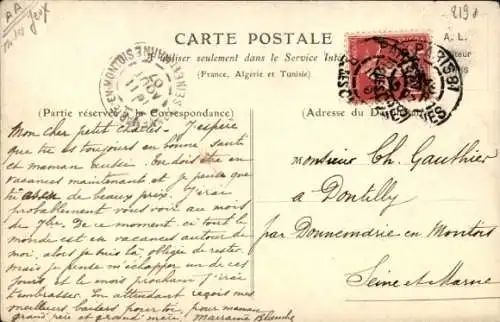 AA
819
CARTE POSTALE
A utiliser seulement dans le Service
(France, Algérie et Tunisie)
A. L.
PARIS 81
SEINE ET MARNE
(Partie réservée à la Correspondance)
Adresse du
Mon cher petit Charles - J'espère
que tu es toujours en bonne santé
et maman aussi. On doit être en
vacances maintenant et je pense que
tu as de beaux prix. J'irai
probablement vous voir au mois
de 7bre. De ce moment ci tout le
monde est en vacances autour de
moi, alors je suis obligée de rester.
mais je pense m'échapper un de ces
jours et le mois prochain j'irai
t'embrasser. En attendant reçois mes
meilleurs baisers pour toi, pour maman
grand père et grand'mère. Marraine Blanche
Monsieur Ch. Gauthier
à Dontilly
par Donnemarie en Montois
Seine et Marne